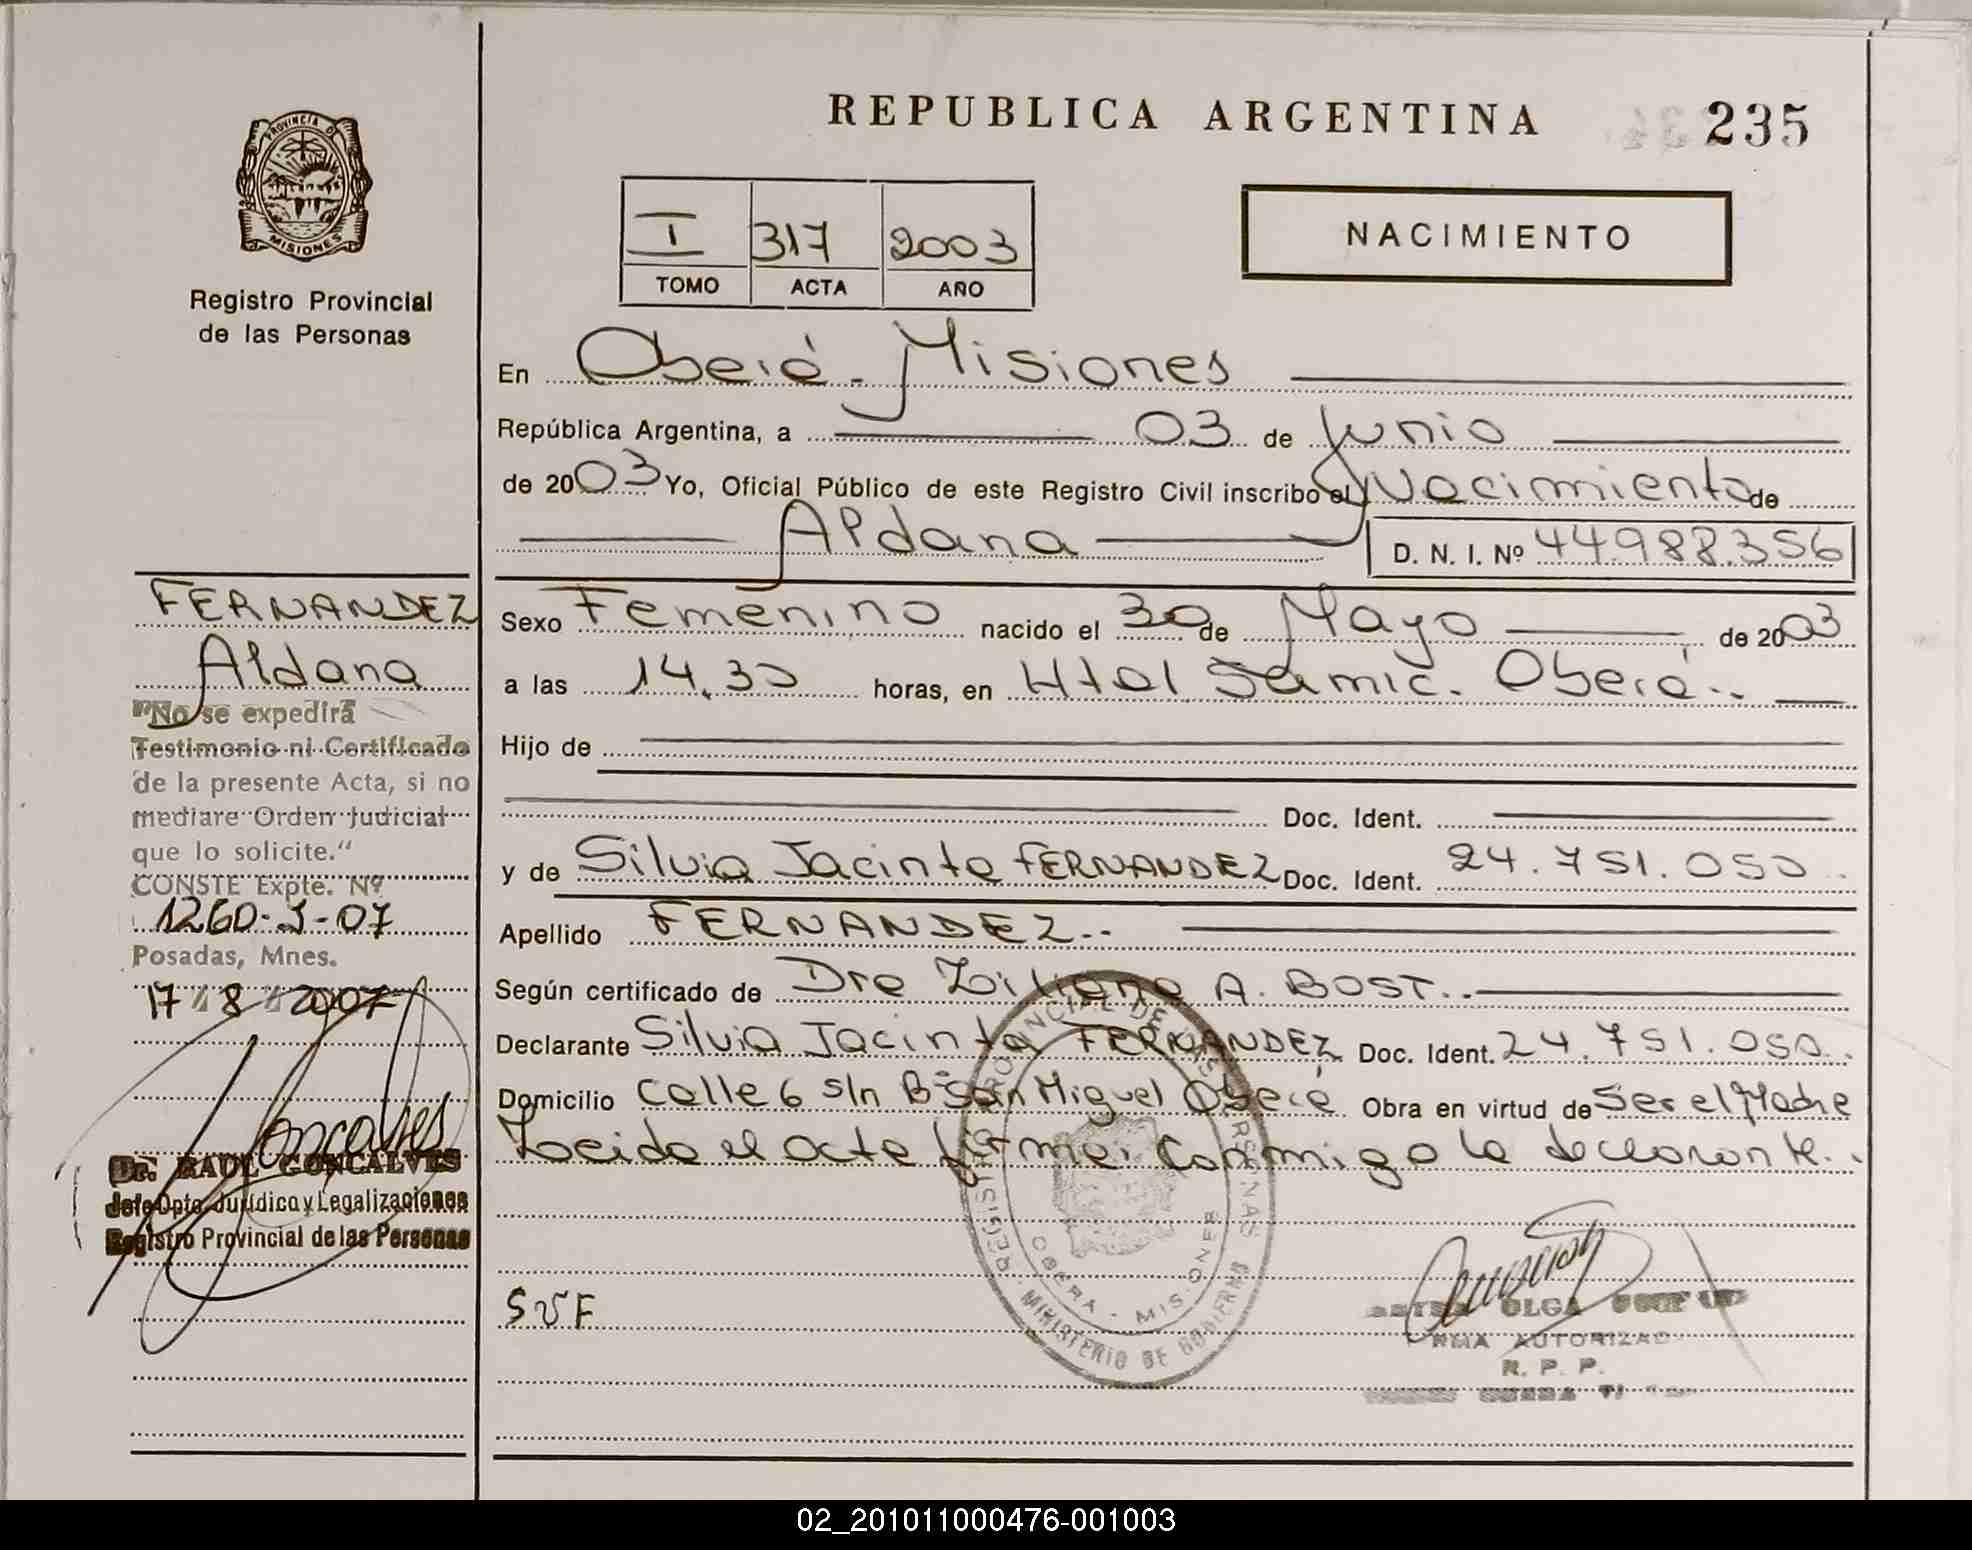 REPUBLICA ARGENTINA
235
PROVINCIA D
MISIONES
Registro Provincial
de las Personas
I 317 2003
TOMO ACTA AÑO
NACIMIENTO
En Oberá - Misiones
República Argentina, a 03 de Junio
de 2003 Yo, Oficial Público de este Registro Civil inscribo el Nacimiento de
Aldana D. N. I. Nº 44.988.356
Sexo Femenino nacido el 30 de Mayo de 2003
a las 14.30 horas, en Htal Samic. Oberá..
Hijo de
Doc. Ident.
y de Silvia Jacinta FERNANDEZ Doc. Ident. 24.751.050
Apellido FERNANDEZ..
Según certificado de Dra Liliana A. BOST..
Declarante Silvia Jacinta FERNANDEZ Doc. Ident. 24.751.050..
Domicilio Calle 6 s/n Bº San Miguel Oberá Obra en virtud de Ser el Madre
Leida el acta firma conmigo la declarante..
SVF
FERNANDEZ
Aldana
"No se expedirá
Testimonio ni Certificado
de la presente Acta, si no
mediare Orden Judicial
que lo solicite."
CONSTE Expte. Nº
1260-J-07
Posadas, Mnes.
17 / 8 / 2007
Goncalves
Dr. RAUL GONCALVES
Jefe Dpto. Jurídico y Legalizaciones
Registro Provincial de las Personas
PROVINCIAL DE PERSONAS
MINISTERIO DE GOBIERNO
OBERA - MISIONES
OLGA
AUTORIZAD
R. P. P.
02_201011000476-001003